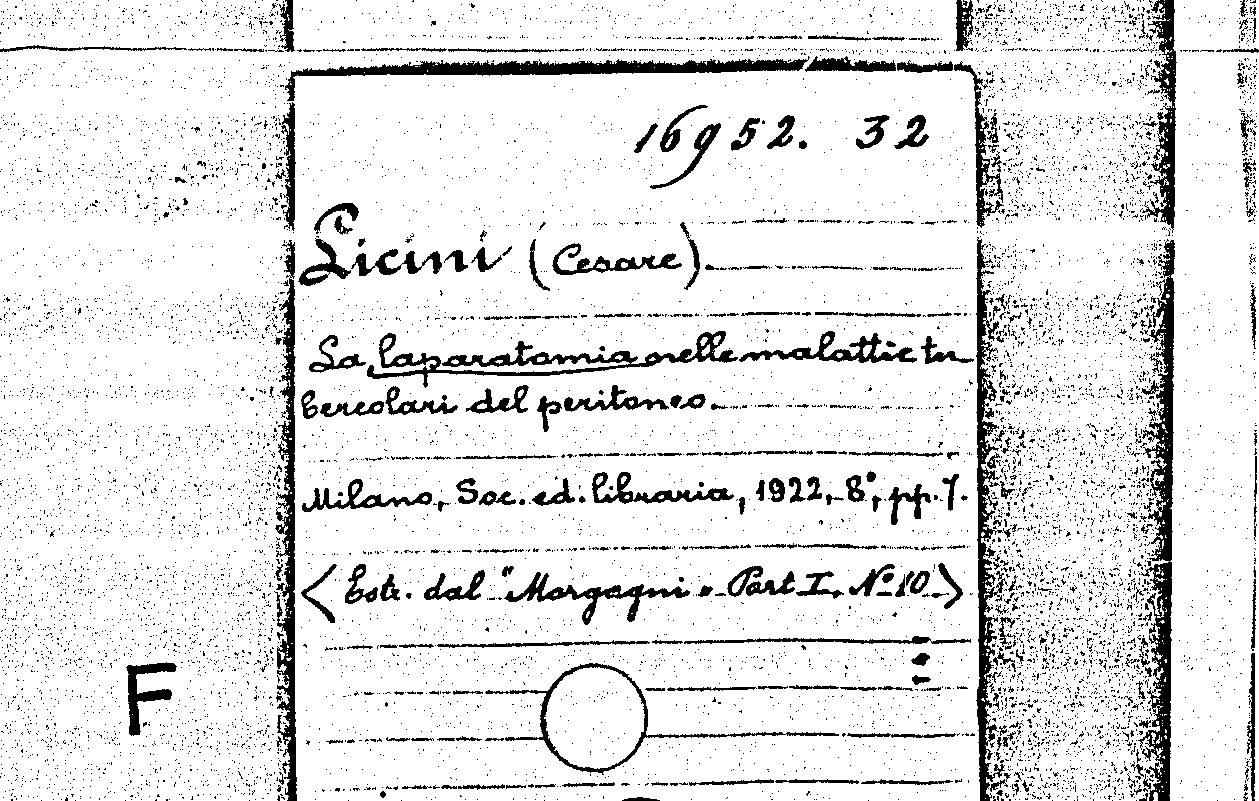 16952. 32
Licini (Cesare).
La laparatomia nelle malattie tu
bercolari del peritoneo.
Milano, Soc. ed. libraria, 1922, 8°, pp. 7.
<Estr. dal "Morgagni" Part I. N° 10>
F